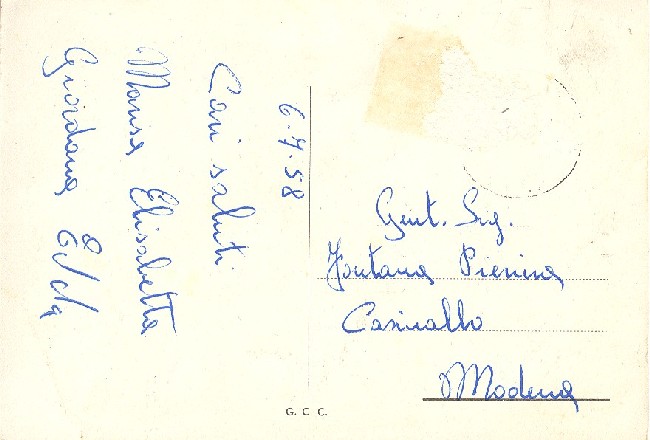 6-7-58
Cari saluti
Marisa Elisabetta
Giordana Elda
Gent. Sig.
Fontana Pierina
Casinalbo
Modena
G. C. C.